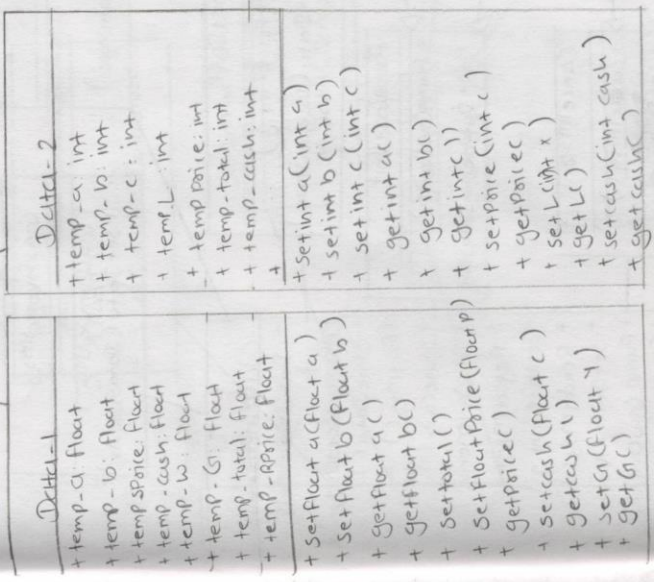 Data-1
+ temp-a: float
+ temp-b: float
+ tempSPrice: float
+ temp-cash: float
+ temp-W: float
+ temp-G: float
+ temp-total: float
+ temp-RPrice: float
+ setfloat a(float a)
+ setfloat b(float b)
+ getfloat a()
+ getfloat b()
+ settotal()
+ setfloatPrice(float P)
+ getPrice()
+ setcash(float c)
+ getcash()
+ setG(float Y)
+ getG()
Data-2
+ temp-a: int
+ temp-b: int
+ temp-c: int
+ temp.L: int
+ tempPrice: int
+ temp-total: int
+ temp-cash: int
+
+ setint a(int a)
+ setint b(int b)
+ setint c(int c)
+ getint a()
+ getint b()
+ getintc()
+ setPrice(int c)
+ getPrice()
+ setL(int x)
+ getL()
+ setcash(int cash)
+ getcash()